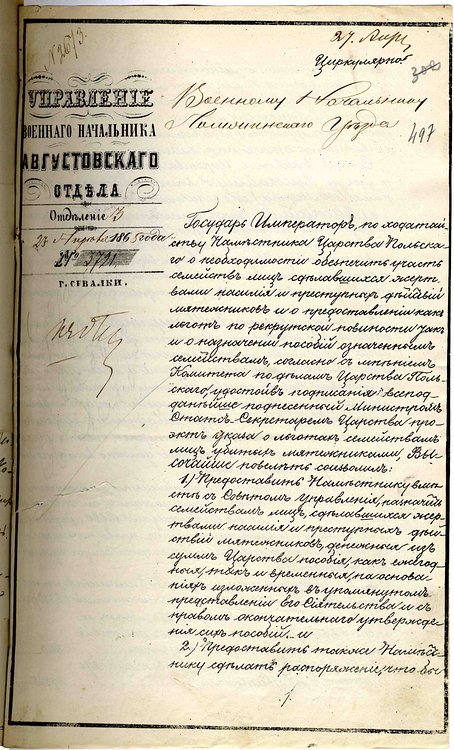 № 2673.
27. Апр.
Циркулярно
300
497
УПРАВЛЕНІЕ
ВОЕННАГО НАЧАЛЬНИКА
АВГУСТОВСКАГО
ОТДѢЛА
Отдѣленіе 3
23 Апрѣля 1865 года
№ 3721
Г. СУВАЛКИ.
Военному Начальнику
Ломжинскаго Уѣзда
Государь Императоръ, по ходатай
ству Намѣстника Царства Польска
го о необходимости обезпечить участь
семействъ лицъ сдѣлавшихся жерт
вами насилія и преступныхъ дѣйствій
мятежниковъ и о предоставленіи какъ
льготъ по рекрутской повинности такъ
и о назначеніи пособій означеннымъ
семействамъ, согласно съ мнѣніемъ
Комитета по дѣламъ Царства Поль
скаго, удостоивъ подписанія всепод
даннѣйше поднесенный Министромъ
Статсъ-Секретаремъ Царства про
эктъ Указа о льготахъ семействамъ
лицъ убитыхъ мятежниками, Вы
сочайше повелѣть соизволилъ:
1.) Предоставить Намѣстнику вмѣ
стѣ съ Совѣтомъ Управленія, назначить
семействамъ лицъ, сдѣлавшихся жер
твами насилія и преступныхъ дѣй
ствій мятежниковъ, денежныя изъ
суммъ Царства пособія, какъ ежегод
ныя, такъ и временныя, на основа
ніяхъ изложенныхъ въ упомянутомъ
представленіи его Сіятельства и съ
правомъ окончательнаго утвержде
нія сихъ пособій. и
2.) Предоставить также Намѣст
нику сдѣлать распоряженіе, что бы